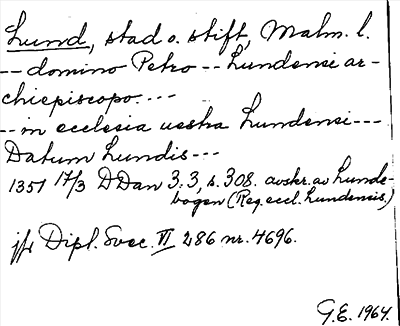 Lund, stad o. stift, Malm. l.
-- domino Petro -- Lundensi ar-
chiepiscopo. ---
-- in ecclesia uestra Lundensi ---
Datum Lundis ---
1351 17/3 DDan 3:3, s. 308. avskr. av Lunde-
bogen (Reg. eccl. Lundensis.)
jfr Dipl. Svec. VI 286 nr. 4696.
G.E. 1964.